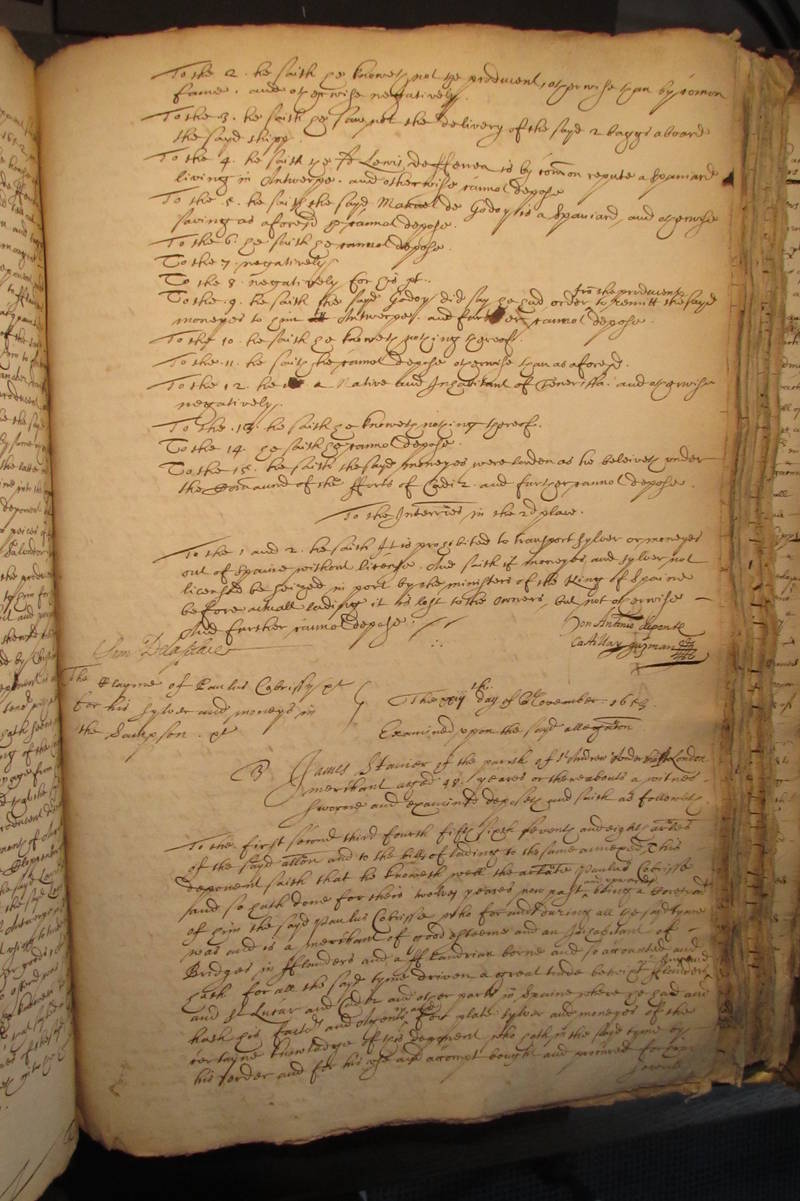 To the 2. he saith he knoweth not the producent, otherwise than by comon
fame. and otherwise negatively.
To the 3. he saith he saw not the delivery of the sayd 2 baggs aboord
the sayd shipp.
To the 4. he saith the sd Lewis de is by comon repute a Spaniard
living in Antwerpe. and otherwise cannot depose
To the 5. he saith the sayd Manuel de Godoy is a Spaniard, and otherwise
saving as aforesd he cannot depose.
To the 6. he saith he cannot depose.
To the 7. negatively
To the 8. negatively for his pt.
from the producent
To the .9. he saith the sayd Godoy did say he had order to remitt the sayd
moneyes to him at Antwerpe. and further cannot depose.
To the 10. he saith he knoweth nothing thereof.
To the .11. he saith he cannot depose otherwise than as aforesd.
To the 12. he is a Native and Inhabitant of Teneriffa. and otherwise
negatively.
To the .13. he saith he knoweth nothing thereof.
To the 14. he saith he cannot depose.
To the 15. he saith the sayd moneyes were laden as he beleiveth under
the Comaund of the fforts of Cadiz. and further cannot depose.
To the Interries in the 2d place.
To the 1 and 2. he saith It is prohibited to transport sylver or moneyes
out of Spaine without license. And saith if moneyes and sylver not
licensed be seized in port by the ministers of the King of Spaine
before actuall lading it is lost to the owners, but not otherwise
And further cannot depose.
Don Antonio
Castillo y guzman
The Clayme of Paulus Cobrisse &c
for his sylver and moneys in
the Sampson. &c
The day of November 1653.
Examined upon the sayd allegation
James Stanier of the parish of St Andrew Undershaft London
merchant aged 48. yeares or thereabouts a witnes
sworne and examined deposeth and saith as followeth.
To the first second third fourth fifth sixth seventh and eighth articles
of the sayd allon and to the bills of lading to the same annexed This
deponent saith that he knoweth well the arlate Paulus Cobrisse
and so hath done for theis twelve yeares now past being a
of him the sayd Paulus Cobrisse who for and during all the sayd tyme
was and is a merchant of good esteeme and an Inhabitant of
Bridges in fflanders and a fflandrian borne and so accounted and
hath for all the sayd tyme driven a great trade betwixt fflanders
and St Lucar and Cadiz and other parts in Spaine where he had and
hath his factors and for plate sylver and moneyes of the
certayne knowledge of this deponent who hath in the sayd tyme by
his order and for his use and accompt bought and procured for him